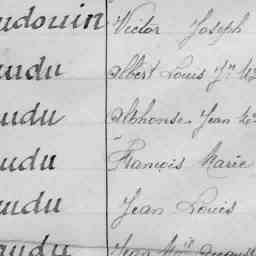 udouin Victor Joseph
udu Albert Louis Jn
udu Alphonse Jean
udu François Marie
udu Jean Louis
udu Jean August